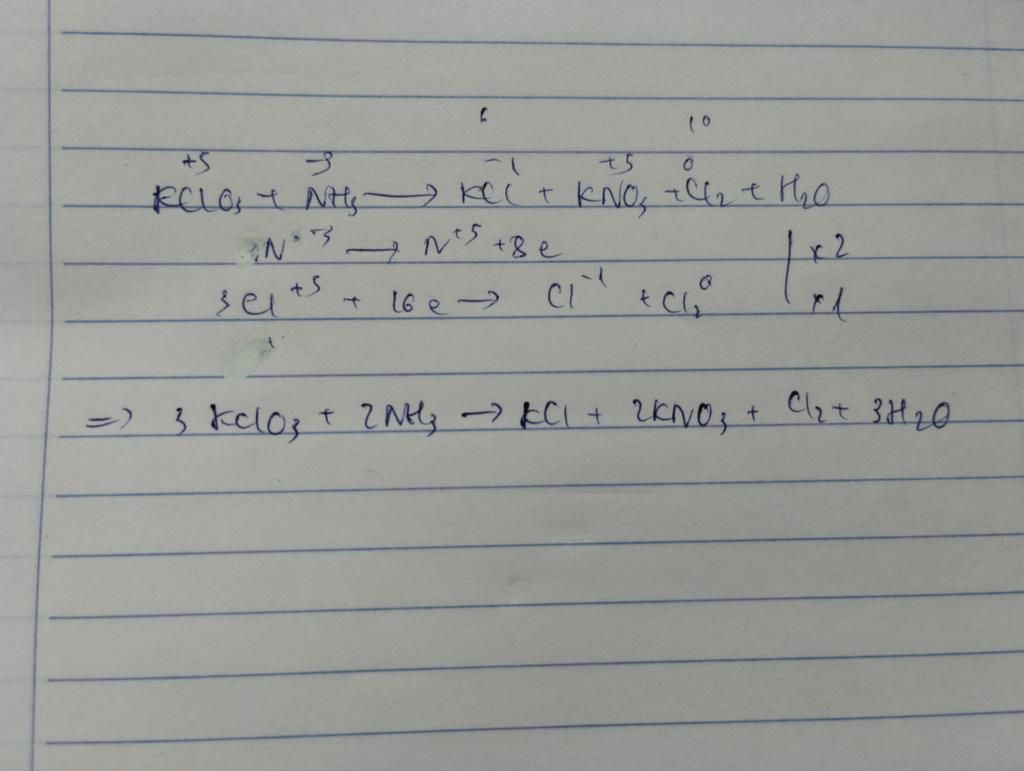 6 10
+5 -3 -1 +5 0
KClO₃ + NH₃ → KCl + KNO₃ + Cl₂ + H₂O
N⁻³ → N⁺⁵ + 8e | x2
3Cl⁺⁵ + 16e → Cl⁻¹ + Cl₂⁰ | x1
=> 3KClO₃ + 2NH₃ → KCl + 2KNO₃ + Cl₂ + 3H₂O